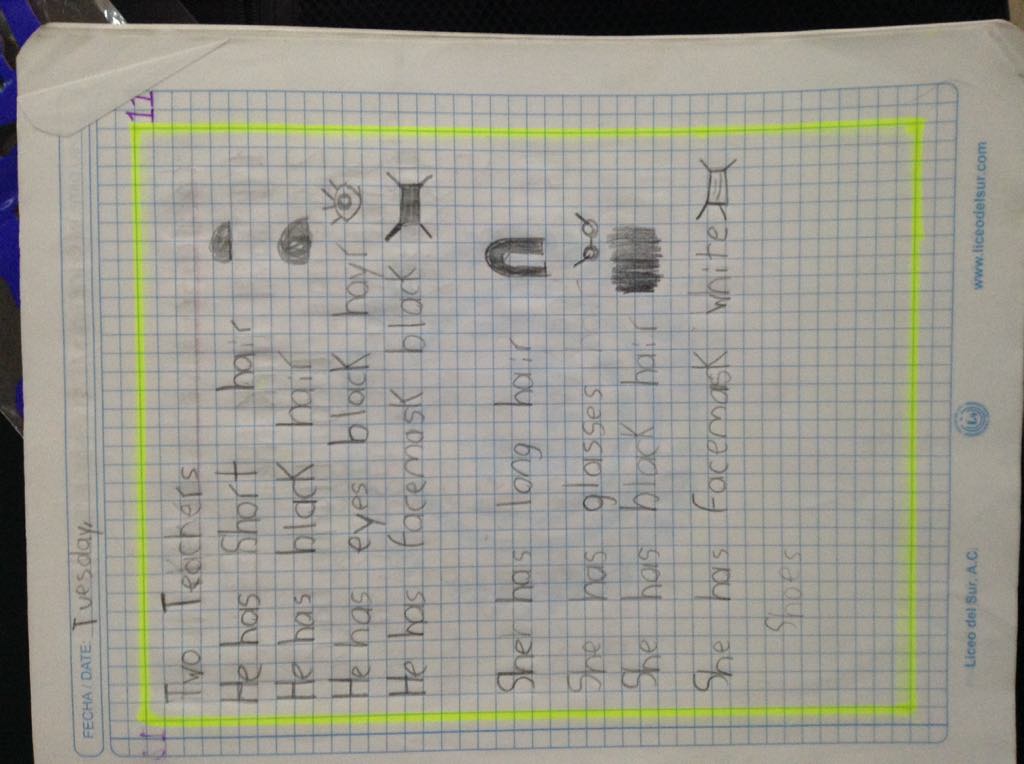 FECHA / DATE: Tuesday,
11
Two Teachers
He has Short hair
He has black hair
He has eyes black hayr
He has facemask black
Sher has long hair
She has glasses
She has black hair
She has facemask white
Shoes
Liceo del Sur, A.C.
www.liceodelsur.com